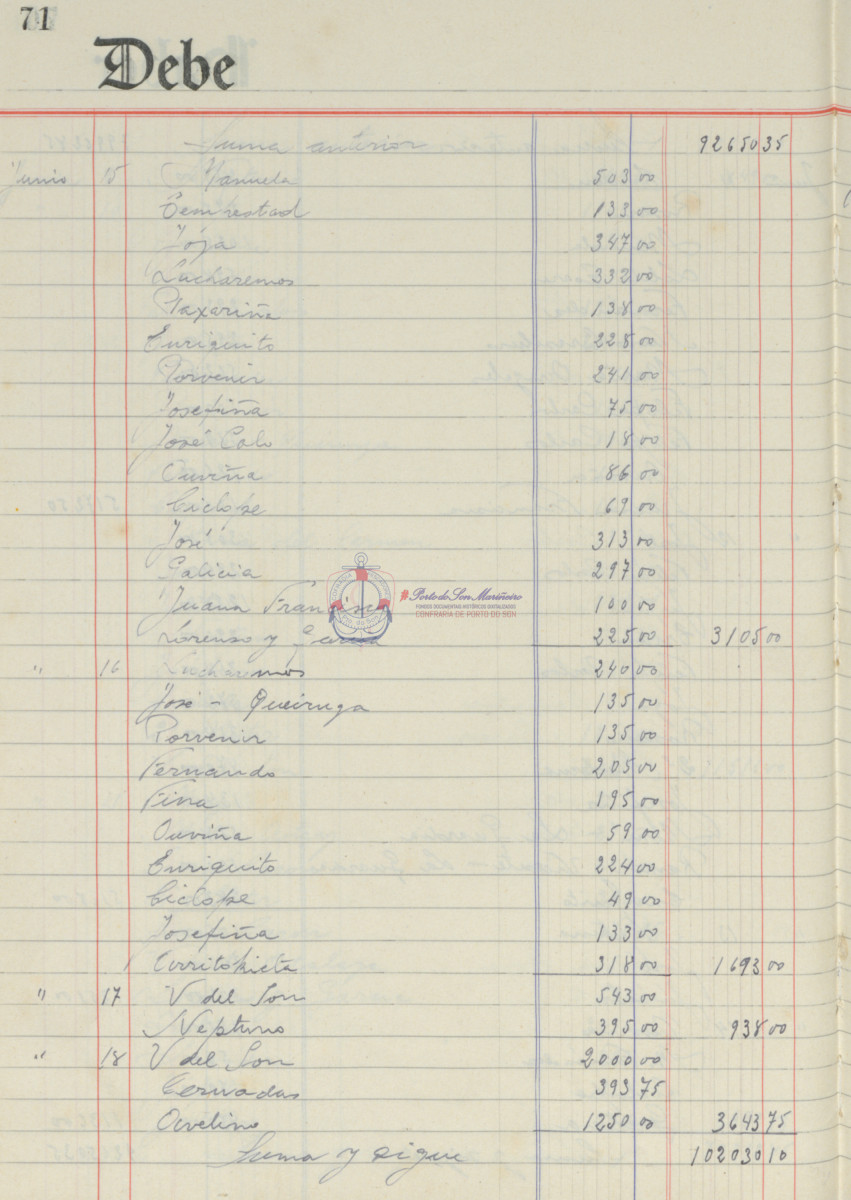 71
Debe
Suma anterior 92650 35
Junio 15 Manuela 503 00
Tempestad 133 00
Joja 347 00
Lucharemos 332 00
Paxariña 138 00
Enriquito 228 00
Porvenir 241 00
Josefiña 75 00
José Colo 18 00
Ouviña 86 00
Ciclope 69 00
José 313 00
Galicia 297 00
Juana Francisca 100 00
Lorenso y 225 00 3105 00
" 16 Lucharemos 240 00
José - Queiruga 135 00
Porvenir 135 00
Fernando 205 00
Fina 195 00
Ouviña 59 00
Enriquito 224 00
Ciclope 49 00
Josefiña 133 00
318 00 1693 00
" 17 V del Son 543 00
Neptuno 395 00 938 00
" 18 V del Son 2000 00
Cernadas 393 75
Avelino 1250 00 3643 75
Suma y sigue 102030 10
#Porto do Son Mariñeiro
FONDOS DOCUMENTAIS HISTÓRICOS DIXITALIZADOS
CONFRARÍA DE PORTO DO SON